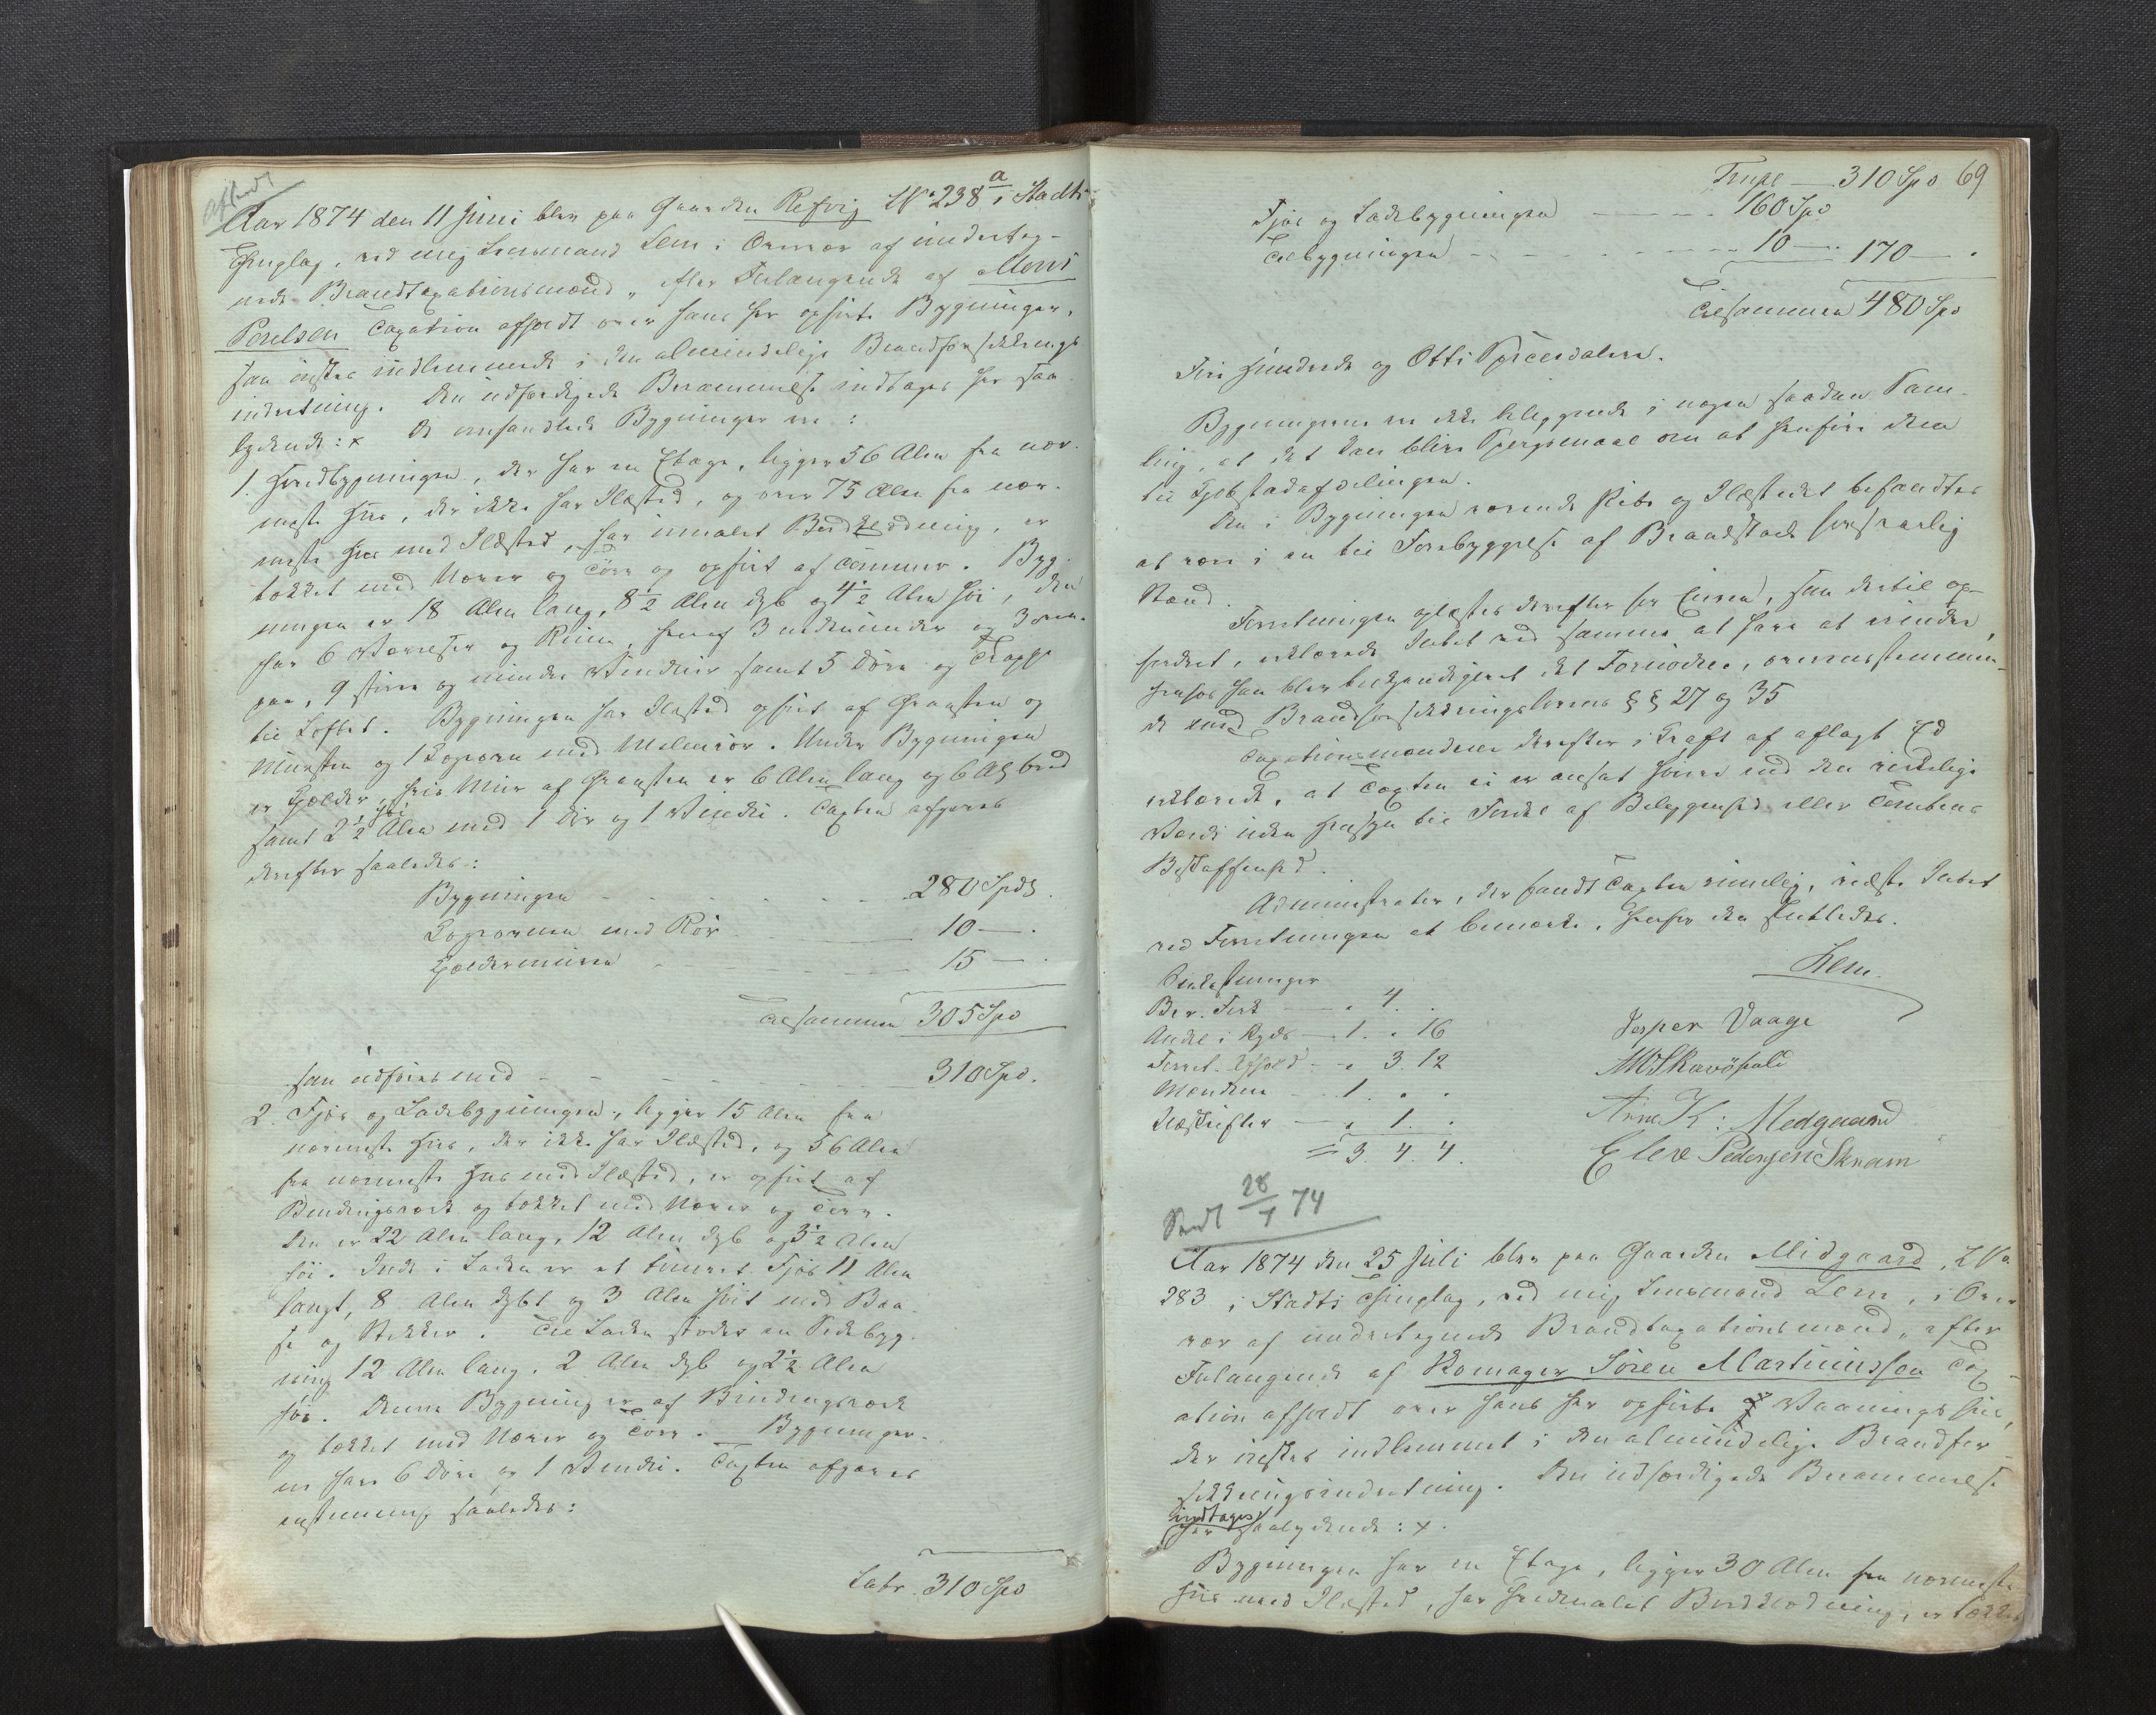 afsendt
Aar 1874 den 11 Juni blev paa Gaarden Refvig LNo 238 a i Stadts
Thinglag, ved mig Lensmand Lem i Overvær af underteg-
nede Brandtaxationsmænd, efter Forlangende af Mons
Povelsen Taxation afholdt over hans her opførte Bygninger,
som ønskes indlemmede i den almindelige Brandforsikrings
indretning. Den udfærdigede Berammelse indtages her saa
lydende: x De omhandlede Bygninger ere:
1. Hovedbygningen, der har en Etage, ligger 56 Alen fra nær-
meste Hus, der ikke har Ildsted, og over 75 Alen fra nær-
meste Hus med Ildsted, har umalet Bordklædning, er
tækket med Næver og Törv og opført af Tømmer. Byg-
ningen er 18 Alen lang, 8½ Alen dyb og 4½ Alen høi, den
har 6 Værelser og Rum, heraf 3 nedenunder og 3 oven-
paa, 9 større og mindre Vinduer samt 5 Döre og Trappe
til Loftet. Bygningen har Ildsted opført af Graasten og
Mursten og 1 Kogeovn med Malmrör. Under Bygningen
er Kjelder, hvis Mur af Graasten er 6 Alen lang og 6 Al bred
samt 2½ Alen høi med 1 Dör og 1 Vindu. Taxten afgaves
derefter saaledes:
Bygningen 280 Spds.
Kogeovnen med Rör 10 — .
Kjeldermuren 15 — .
Tilsammen 305 Spd
som udføres med 310 Spd.
2. Fjös og Ladebygningen, ligger 15 Alen fra
nærmeste Hus, der ikke har Ildsted, og 56 Alen
fra nærmeste Hus med Ildsted, er opført af
Bindingsværk og tækket med Næver og Törv.
Den er 22 Alen lang, 12 Alen dyb og 3½ Alen
høi. Inde i Laden er et tømret Fjös 11 Alen
langt, 8 Alen dybt og 3 Alen høit med Baa-
se og Stikker. Til Laden støder en Sidebyg-
ning 12 Alen lang, 2 Alen dyb og 2½ Alen
høi. Denne Bygning er af Bindingsværk
og tækket med Næver og Törv. Bygninger-
ne have 6 Döre og 1 Vindu. Taxten afgaves
enstemmig saaledes:
Latr. 310 Spd
Transp. — 310 Spd 69
Fjös og Ladebygningen 160 Spd
Tilbygningen 10 — 170 — .
Tilsammen 480 Spd
Fire Hundrede og Otti Speciedaler.
Bygningerne ere ikke beliggende i nogen saadan Sam-
ling, at det kan blive Spørgsmaal om at henføre dem
til Kjøbstadafdelingen.
Den i Bygningen værende Pibe og Ildstedet befandtes
at være i en til Forebyggelse af Brandskade forsvarlig
Stand.
Forretningen oplæstes derefter for Eieren, som dertil op-
fordret, erklærede Intet ved samme at have at erindre,
hvorhos han blev bekjendtgjort det Fornødne, overensstemmen-
de med Brandforsikringslovens §§ 27 og 35
Taxationsmændene derefter i Kraft af aflagt Ed
erklærede, at Taxten ei er ansat høiere end den virkelige
Værdi uden Hensyn til Fordel af Beliggenhed eller Tomtens
Beskaffenhed.
Administrator, der fandt Taxten rimelig, vidste Intet
ved Forretningen at bemærke, hvorfor den sluttedes.
Lem
Omkostninger
Ber. Forr — „ 4. .
Andel i Skyds — 1. „ 16
Forret. Afhold — „ 3. 12
Mændene — 1. „ .
Udskrifter — „ 1. .
= 3 4. 4.
Jesper Vaage
Arne K: Medgaard
Elere Pedersen Skaarn
Sendt 28/7 74
Aar 1874 den 25 Juli blev paa Gaarden Midgaard, LNo
283 i Stadts Thinglag, ved mig Lensmand Lem, i Over-
vær af undertegnede Brandtaxationsmænd, efter
Forlangende af Skomager Sören Martinussen Tax-
ation afholdt over hans her opførte Vaaningshus,
der ønskes indlemmet i den almindelige Brandfor-
sikringsindretning. Den udfærdigede Berammelse
indtages
her saalydende: x.
Bygningen har en Etage, ligger 30 Alen fra nærmeste
Hus med Ildsted, har hvidmalet Bordklædning, er tækket